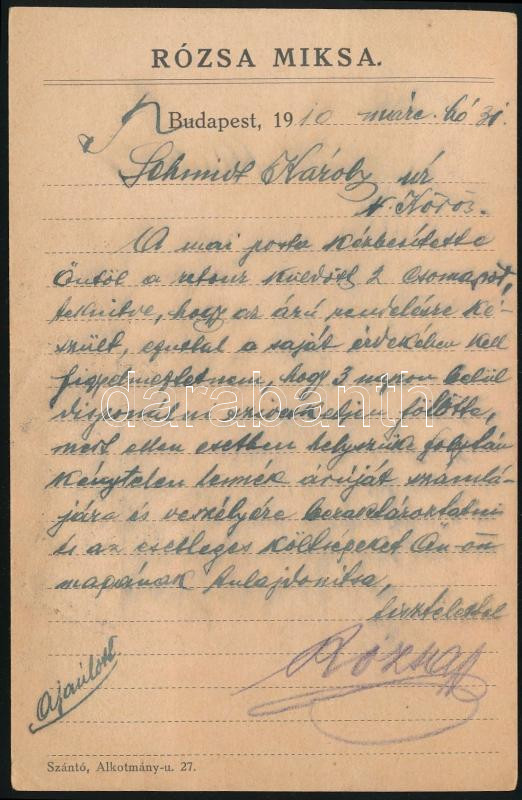 RÓZSA MIKSA.
Budapest, 1910 márc. hó 31.
Schmidt Károly úr
N. Körös.
A mai posta kézbesitette
Öntöl a retour küldött 2 csomagot,
tekintve, hogy az árú rendelésre ké-
szült, ezuttal a saját érdekében kell
figyelmeztetnem, hogy 3 napon belül
disponálni sziveskedjen fölötte,
mert ellen esetben helyszük folytán
kénytelen lennék árúját számlá-
jára és veszélyére beraktároztatni
és az esetleges költségeket Ön ön-
magának tulajdonitsa,
tisztelettel
Rózsa
Ajánlott
darabanth
Szántó, Alkotmány-u. 27.